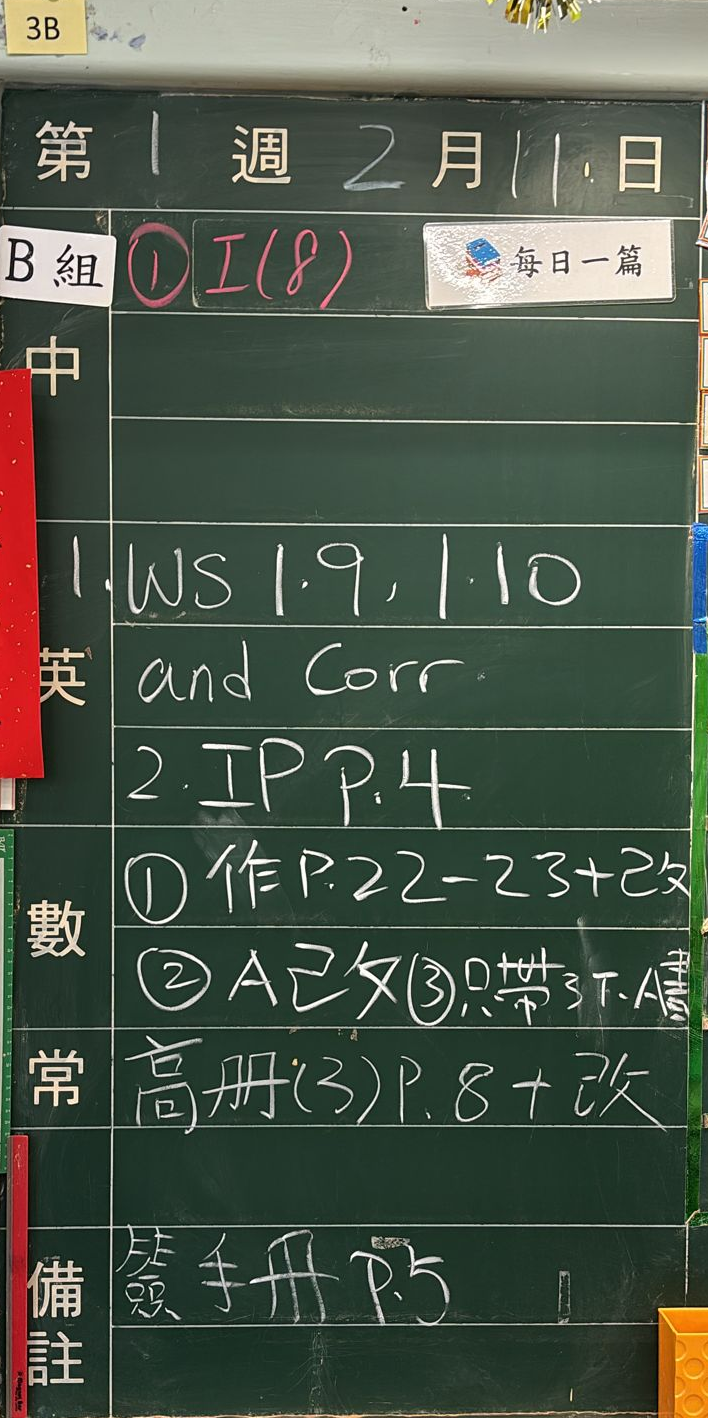 3B
第 1 週 2 月 11 日
B 組 ① I(8) 每日一篇
中
1. WS 1.9, 1.10
英 and Corr.
2. IP P.4
① 作 P.22-23+改
數
② A 已改 ③ 只帶 3下A書
常 高冊(3) P.8 + 改
手冊 P.5
備註